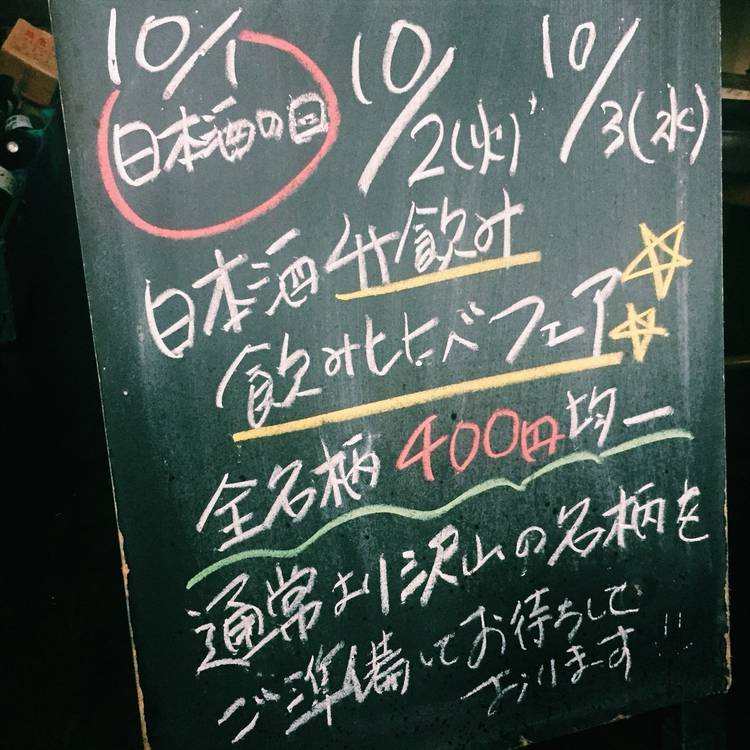 10/1 10/2(火) 10/3(水)
日本酒の日
日本酒 4什飲み
飲み比べフェア
全名柄 400円均一
通常より沢山の名柄を
ご準備してお待ちして
おりまーす!!